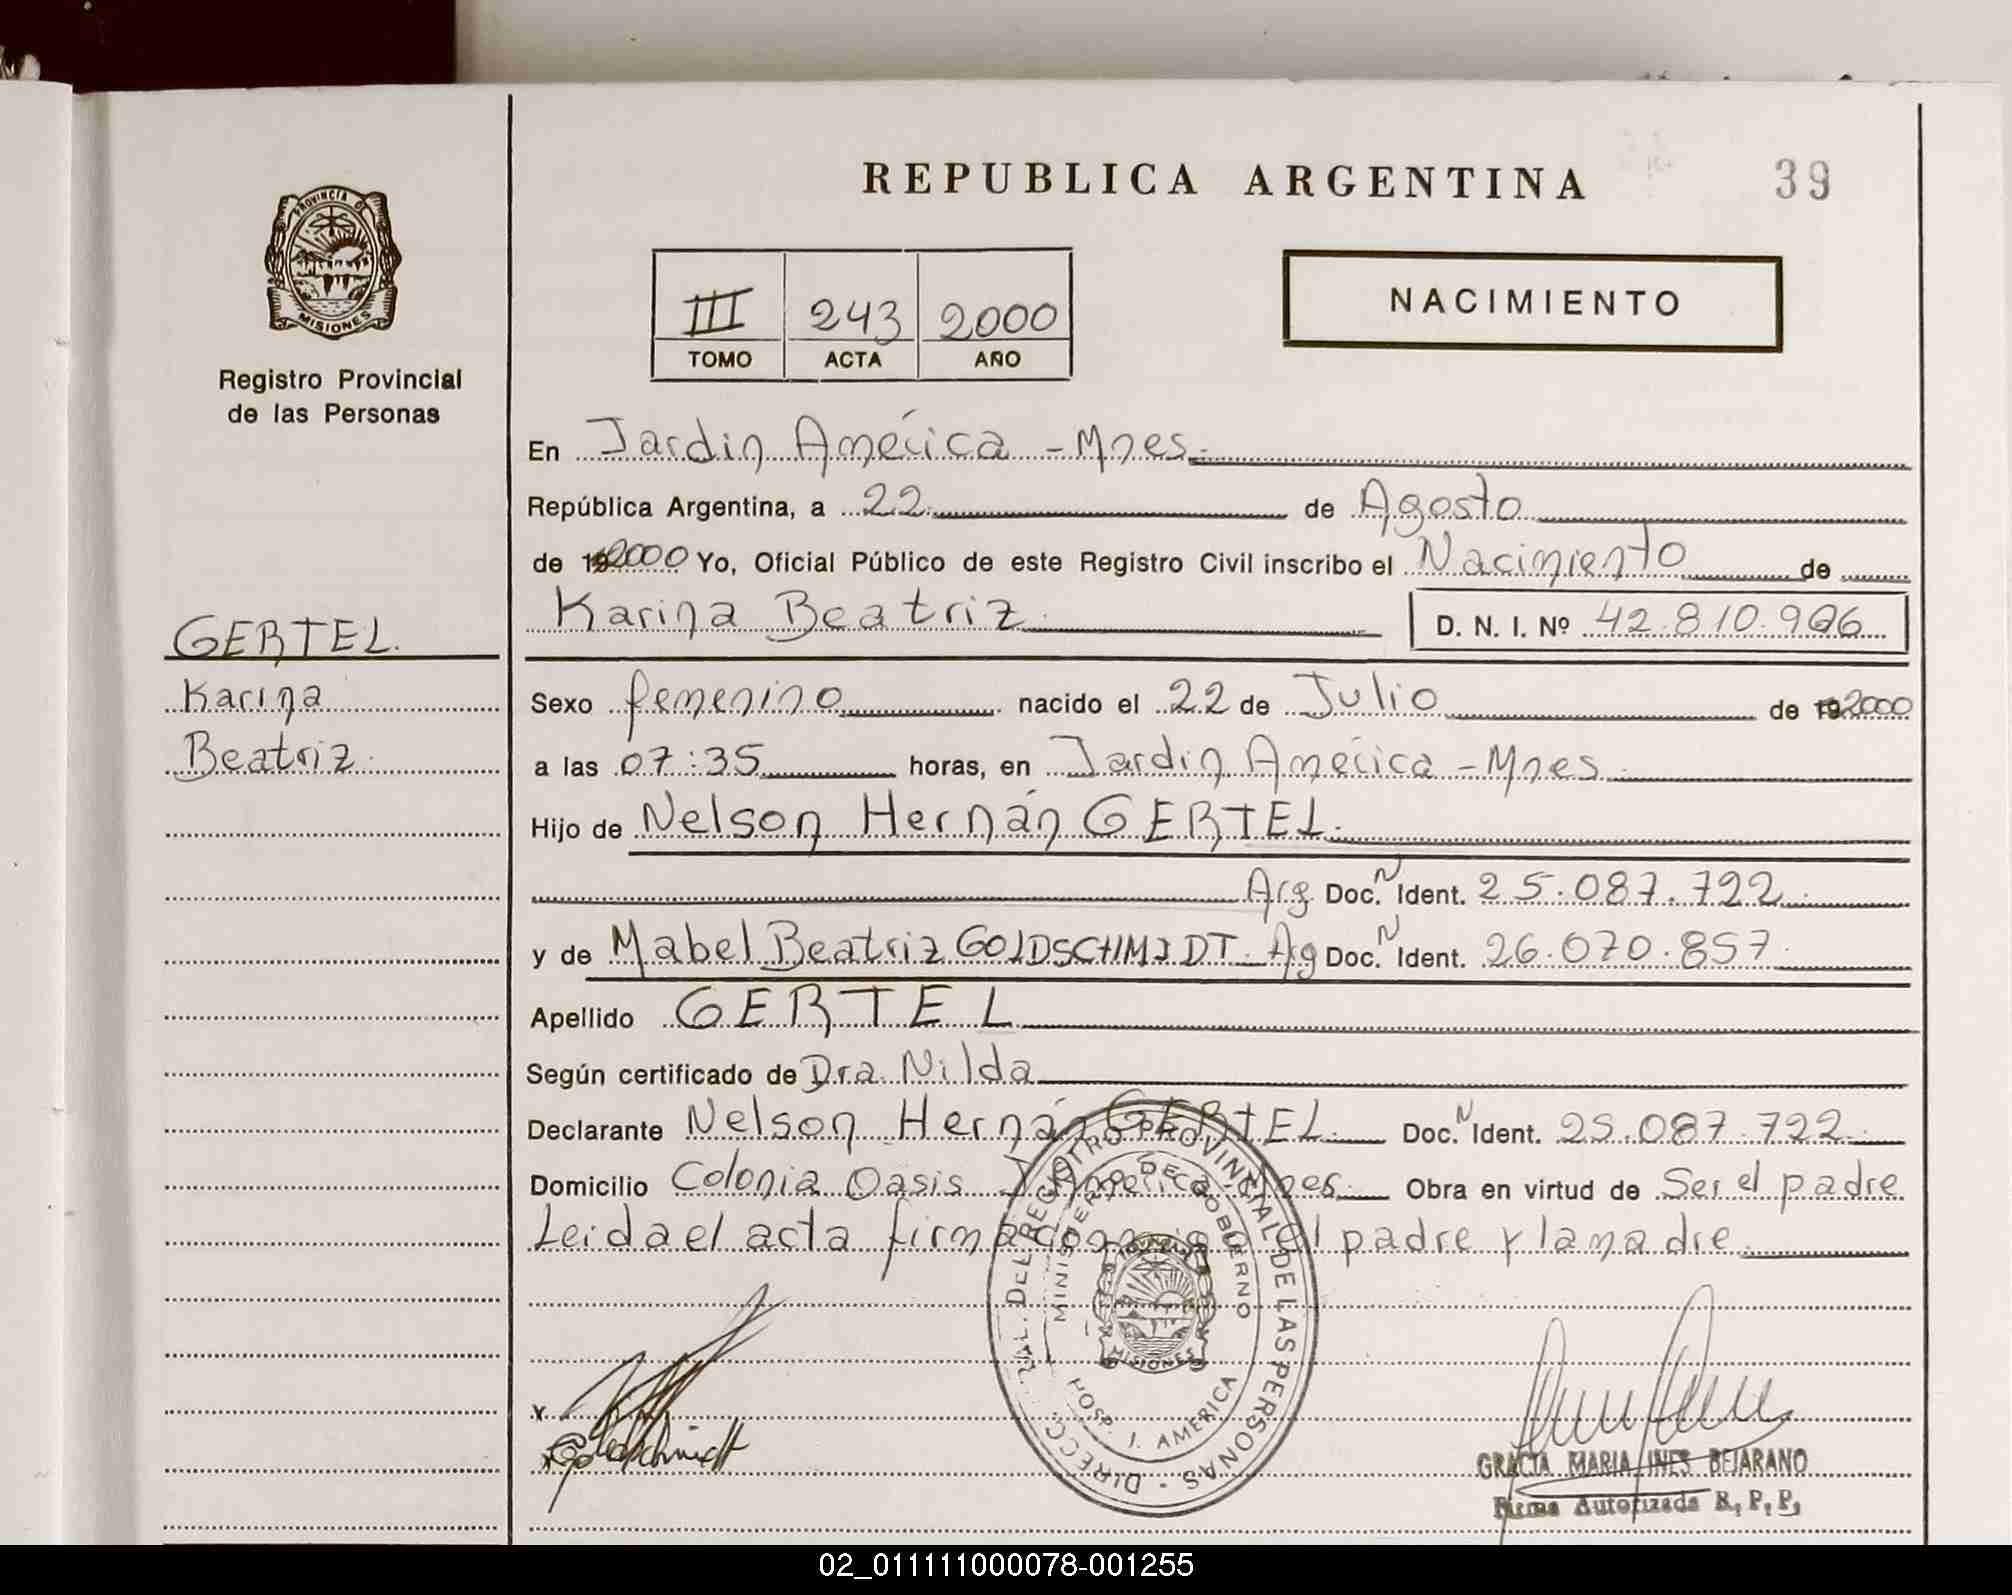 REPUBLICA ARGENTINA
39
PROVINCIA DE
MISIONES
Registro Provincial
de las Personas
III 243 2000
TOMO ACTA AÑO
NACIMIENTO
En Jardin América - Mnes.
República Argentina, a 22 de Agosto
de 2000 Yo, Oficial Público de este Registro Civil inscribo el Nacimiento de
Karina Beatriz D. N. I. Nº 42.810.906
GERTEL.
Karina
Beatriz.
Sexo femenino nacido el 22 de Julio de 2000
a las 07:35 horas, en Jardin América - Mnes.
Hijo de Nelson Hernán GERTEL.
Arg Doc. N Ident. 25.087.722.
y de Mabel Beatriz GOLDSCHMIDT. Ag Doc. N Ident. 26.070.857.
Apellido GERTEL
Según certificado de Dra. Nilda
Declarante Nelson Hernán GERTEL. Doc. N Ident. 25.087.722.
Domicilio Colonia Oasis J. América Mnes. Obra en virtud de Ser el padre
Leida el acta firma conmigo el padre y la madre.
DIRECC. GRAL. DEL REGISTRO PROVINCIAL DE LAS PERSONAS
MINISTERIO DE GOBIERNO
MISIONES
HOSP. J. AMERICA
Goldschmidt
GRACIA MARIA INES BEJARANO
Firma Autorizada R. P. P.
02_011111000078-001255